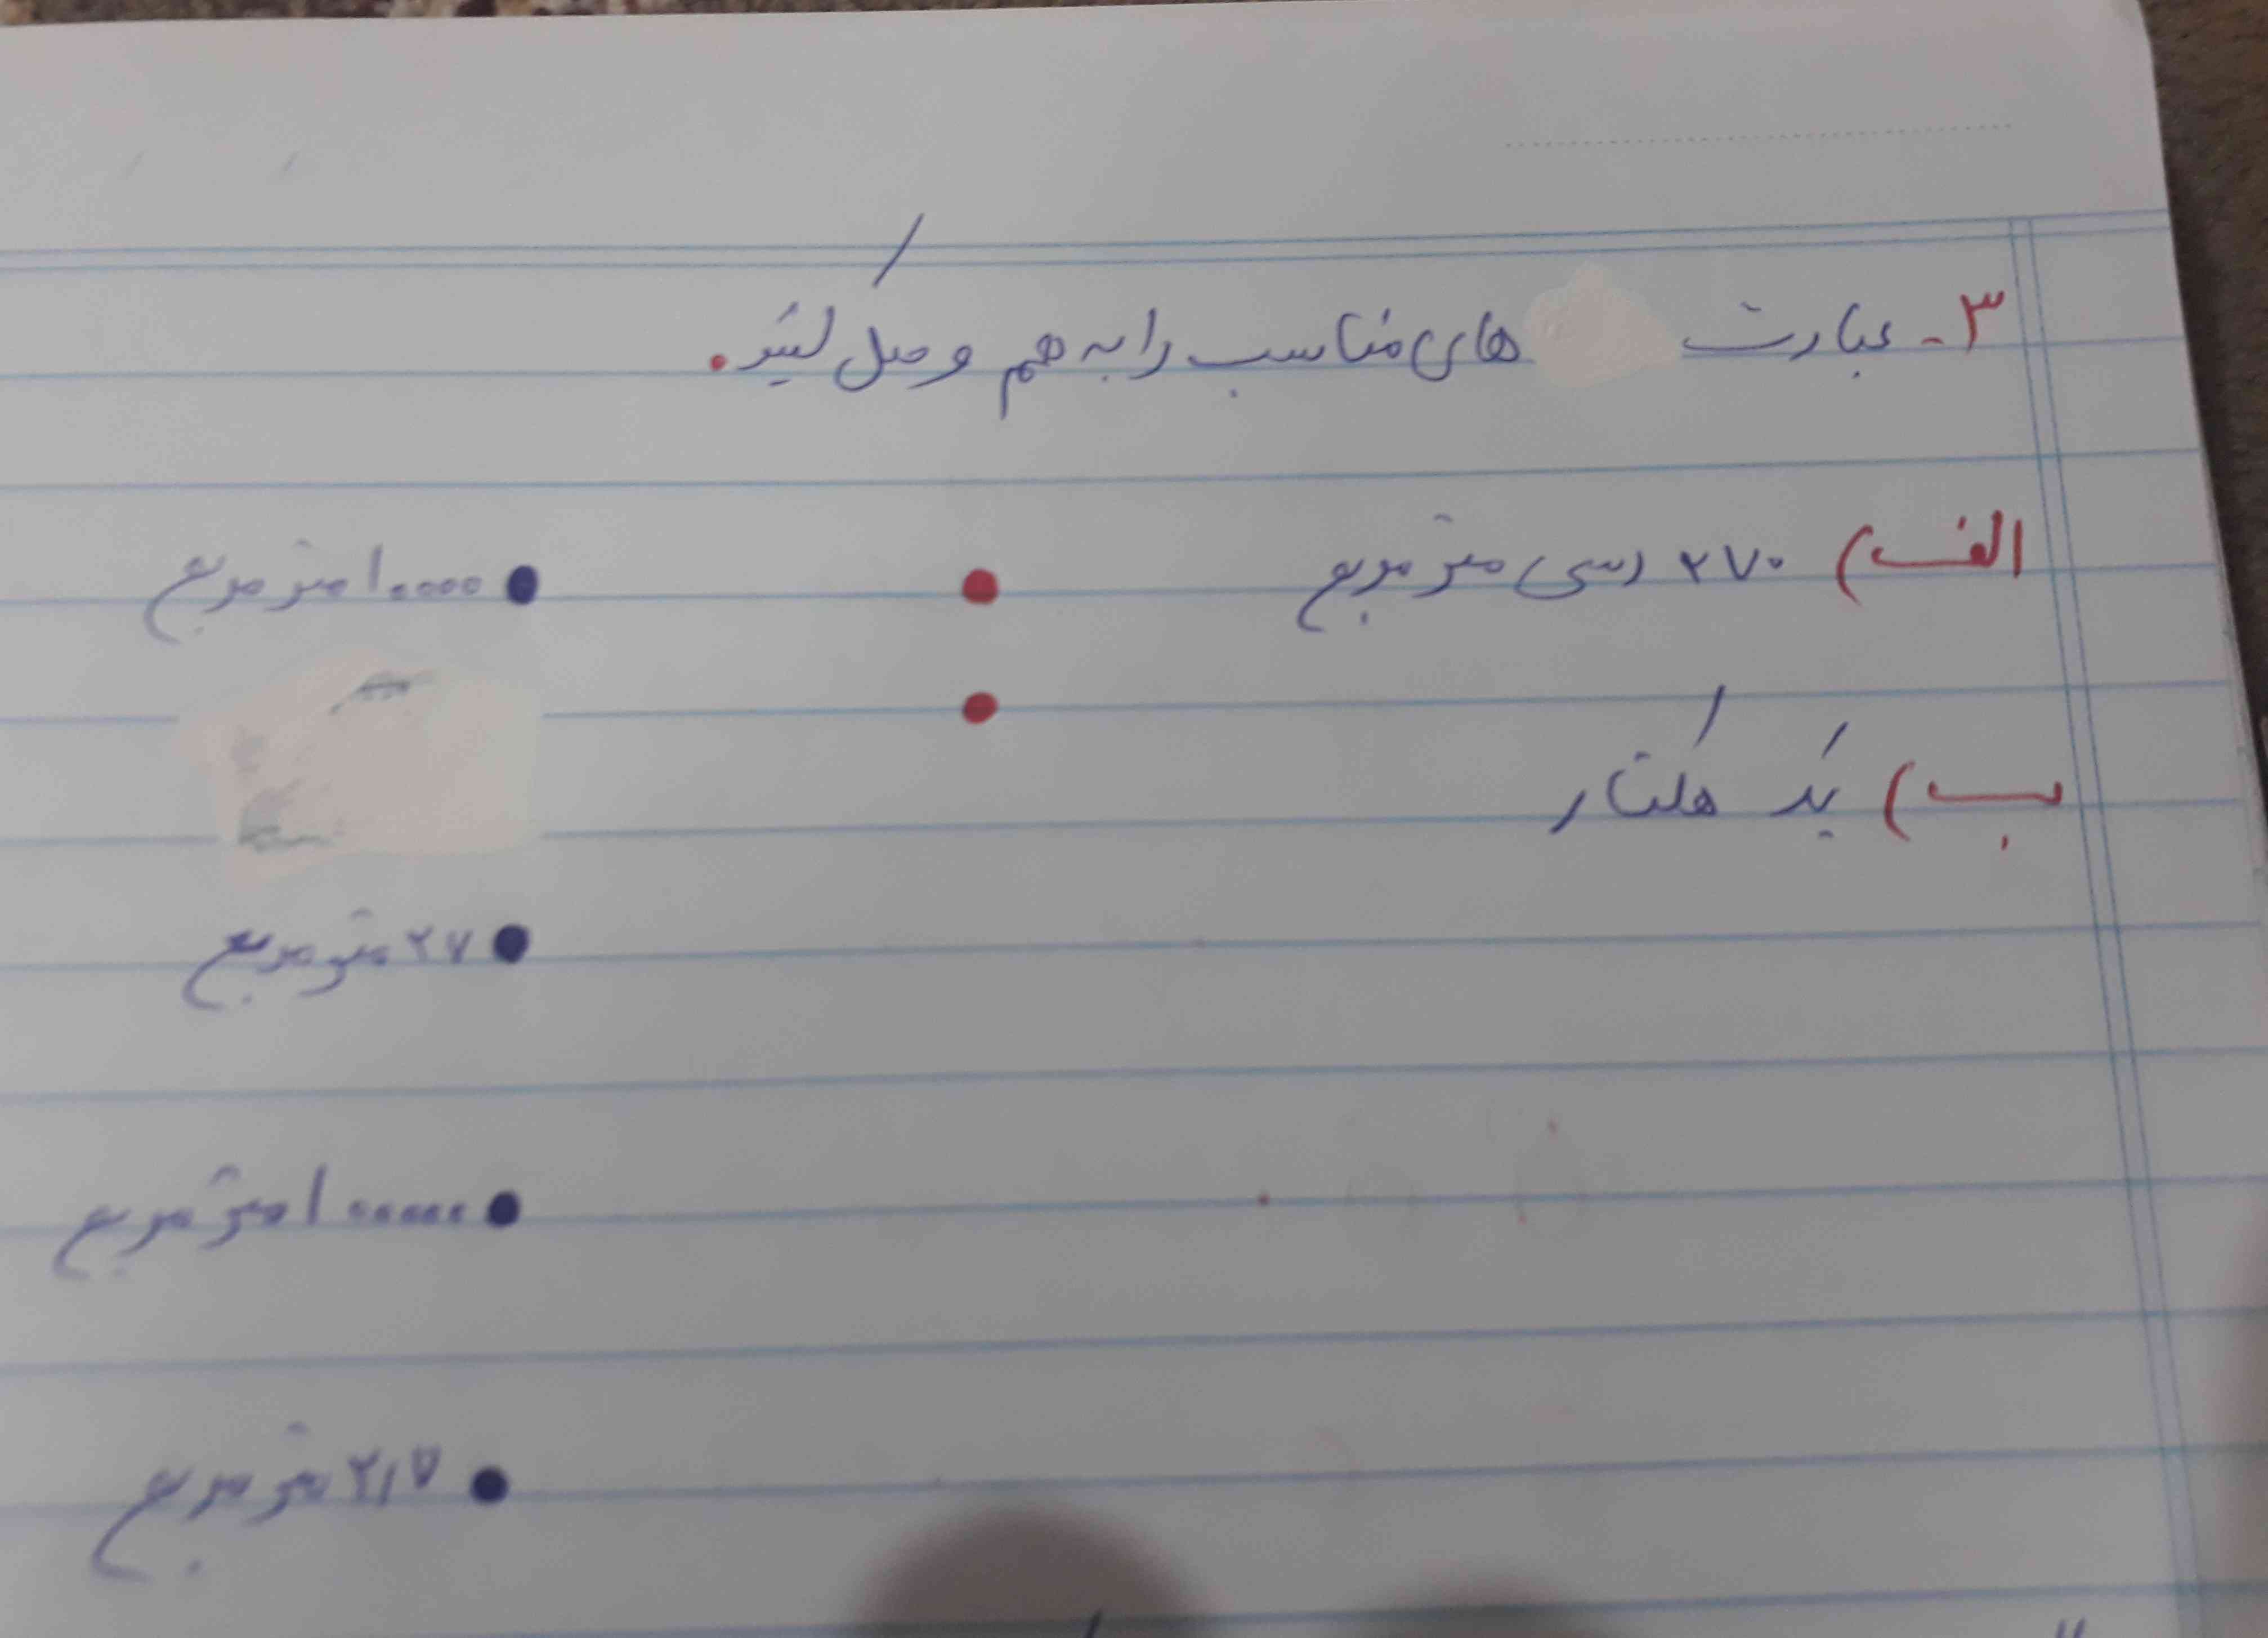 ۳- عبارت های مناسب را به هم وصل کنید.
الف) ۲۷۰ دسی متر مربع
۱۰۰۰۰ متر مربع
ب) یک هکتار
۲۷ متر مربع
۱۰۰۰۰۰ متر مربع
۲/۷ متر مربع